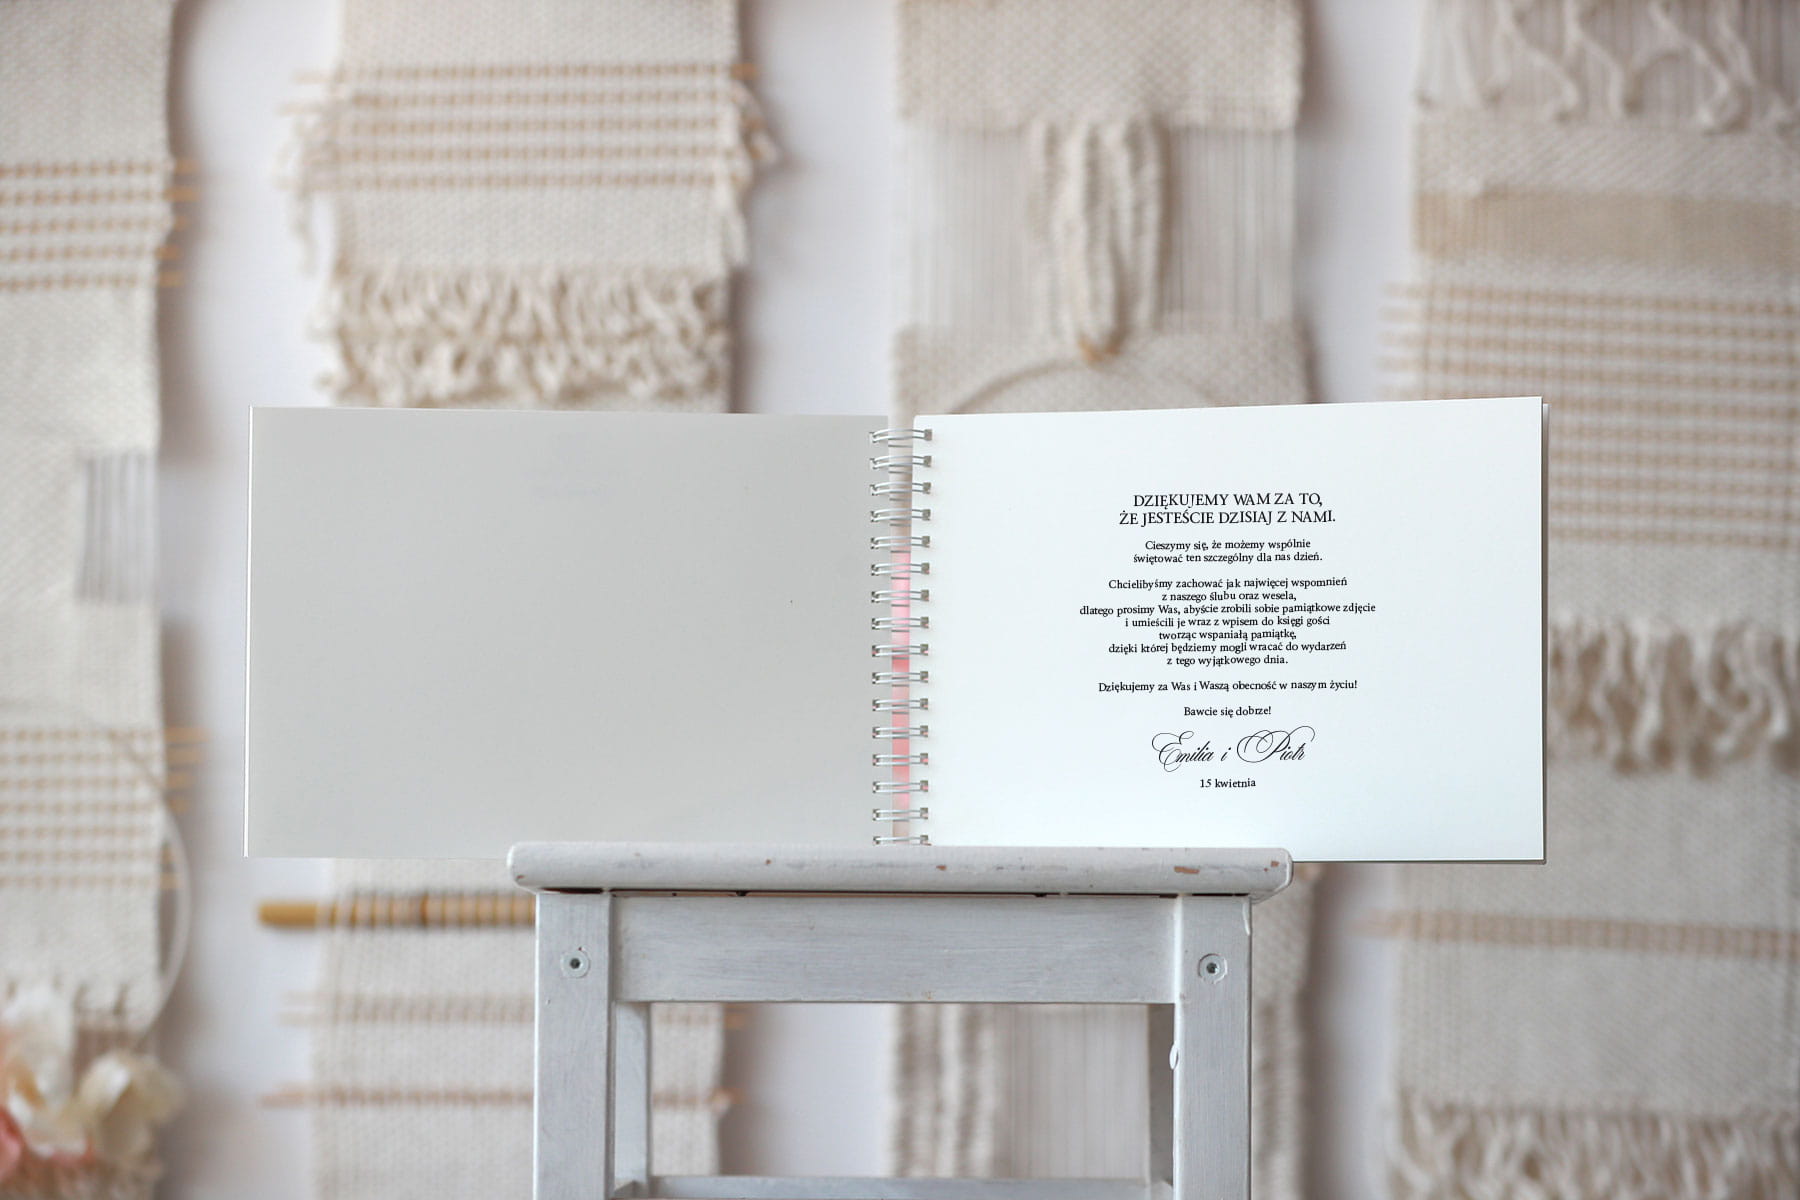 DZIĘKUJEMY WAM ZA TO,
ŻE JESTEŚCIE DZISIAJ Z NAMI.
Cieszymy się, że możemy wspólnie
świętować ten szczególny dla nas dzień.
Chcielibyśmy zachować jak najwięcej wspomnień
z naszego ślubu oraz wesela,
dlatego prosimy Was, abyście zrobili sobie pamiątkowe zdjęcie
i umieścili je wraz z wpisem do księgi gości
tworząc wspaniałą pamiątkę,
dzięki której będziemy mogli wracać do wydarzeń
z tego wyjątkowego dnia.
Dziękujemy za Was i Waszą obecność w naszym życiu!
Bawcie się dobrze!
Emilia i Piotr
15 kwietnia